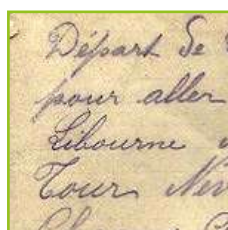 Départ de
pour aller
Libourne
Tour Nev